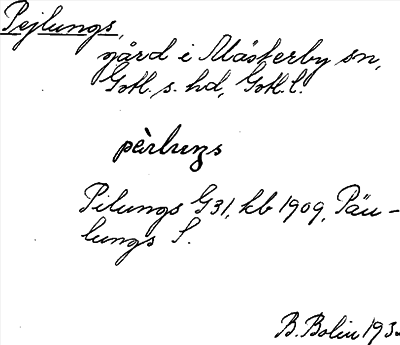 Pejlungs,
gård i Mästerby sn,
Gotl. s. hd, Gotl. l.
pèrluŋs
Pilungs G31, kb 1909, Päu-
lungs S.
B. Bolin 193